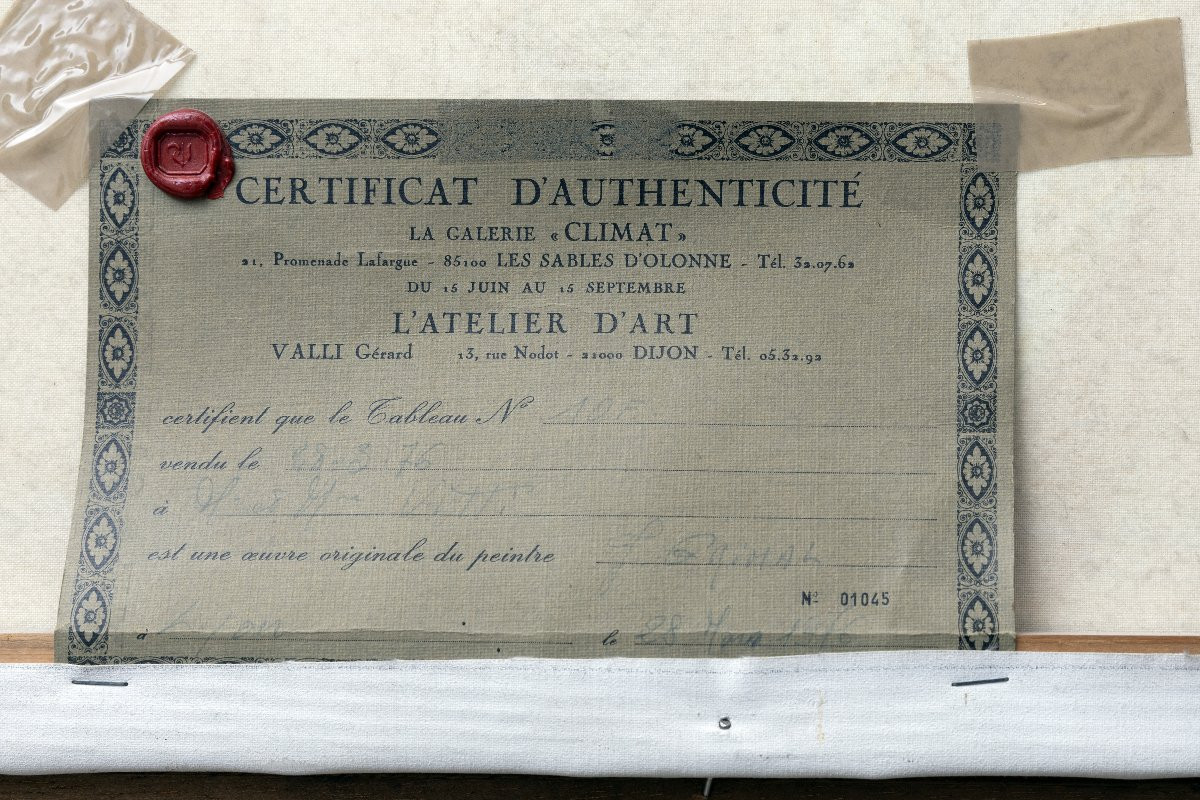 CERTIFICAT D'AUTHENTICITÉ
LA GALERIE «CLIMAT»
21, Promenade Lafargue - 85100 LES SABLES D'OLONNE - Tél. 32.07.62
DU 15 JUIN AU 15 SEPTEMBRE
L'ATELIER D'ART
VALLI Gérard 13, rue Nodot - 21000 DIJON - Tél. 05.32.92
certifient que le Tableau Nº
vendu le 28-3-76
à M. & Mme
est une œuvre originale du peintre
Nº 01045
à le 28 Mars 1976